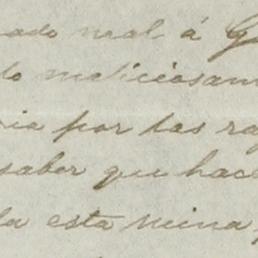 ado real á G
do maliciosam
ria por las ra
saber que hace
la esta reina